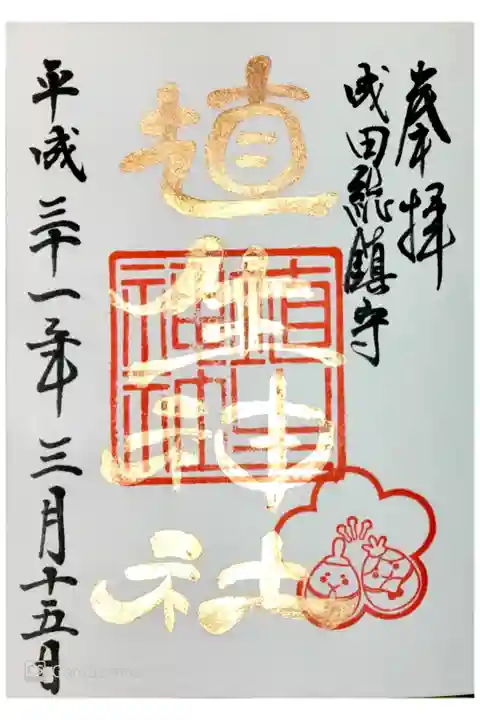 奉拝
成田総鎮守
埴生神社
埴生神社
平成三十一年三月十五日